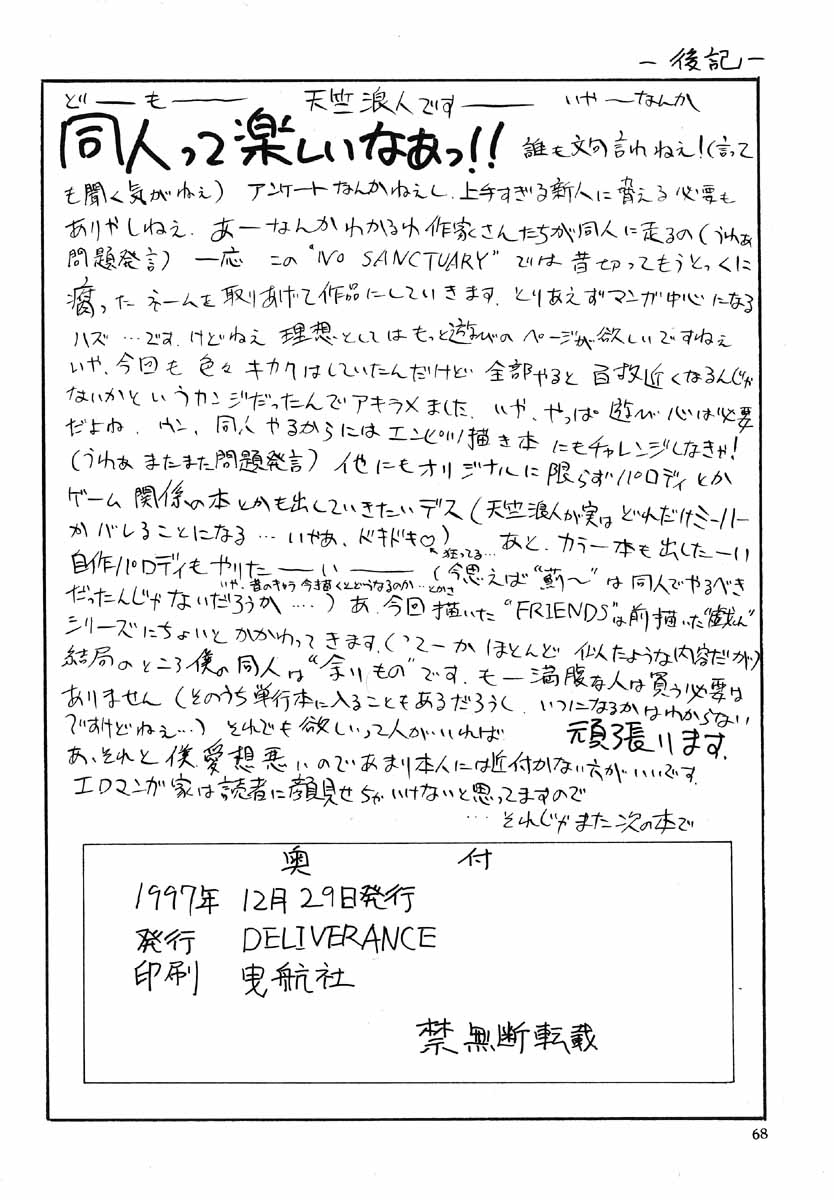 －後記－
どーもー 天竺浪人ですー いやーなんか
同人って楽しいなあっ!! 誰も文句言わねえ!(言って
も聞く気がねぇ) アンケートなんかねえし、上手すぎる新人に脅える必要も
ありやしねえ. あーなんかわかるわ 作家さんたちが同人に走るの(うわぁ
問題発言) 一応 この "NO SANCTUARY" では昔切ってもうとっくに
腐ったネームを取りあげて作品にしていきます. とりあえずマンガ中心になる
ハズ…です. けどねえ 理想としてはもっと遊びのページが欲しいですねえ
いや、今回も色々キカクはしていたんだけど 全部やると百枚近くなるんじゃ
ないかというカンジだったんでアキラメました. いや、やっぱ遊び心は必要
だよね. ウン、同人やるからにはエンピツ描き本にもチャレンジしなきゃ!
(うわぁ またまた問題発言) 他にもオリジナルに限らずパロディとか
ゲーム関係の本とかも出していきたいデス (天竺浪人が実はどれだけミーハー
かバレることになる…いやあ、ドキドキ♡) あと、カラー本も出したーい
←狂ってる…
自作パロディもやりたーいー (今思えば"薊〜"は同人でやるべき
いや、昔のきゃら今描くとどうなるのか…とかさ
だったんじゃないだろうか….) あ、今回描いた "FRIENDS"は前描いた"戯ん"
シリーズにちょいとかかわってきます.(つてーかほとんど似たような内容だが)
結局のところ僕の同人は"余りもの"です. もー満腹な人は買う必要は
ありません (そのうち単行本に入ることもあるだろうし、いつになるかはわからない
ですけどねえ…) それでも欲しいって人がいれば 頑張ります.
あ、それと僕、愛想悪いのであまり本人には近付かない方がいいです.
エロマンガ家は読者に顔見せちゃいけないと思ってますので
…それじゃまた次の本で
奥付
1997年 12月29日発行
発行 DELIVERANCE
印刷 曳航社
禁無断転載
68